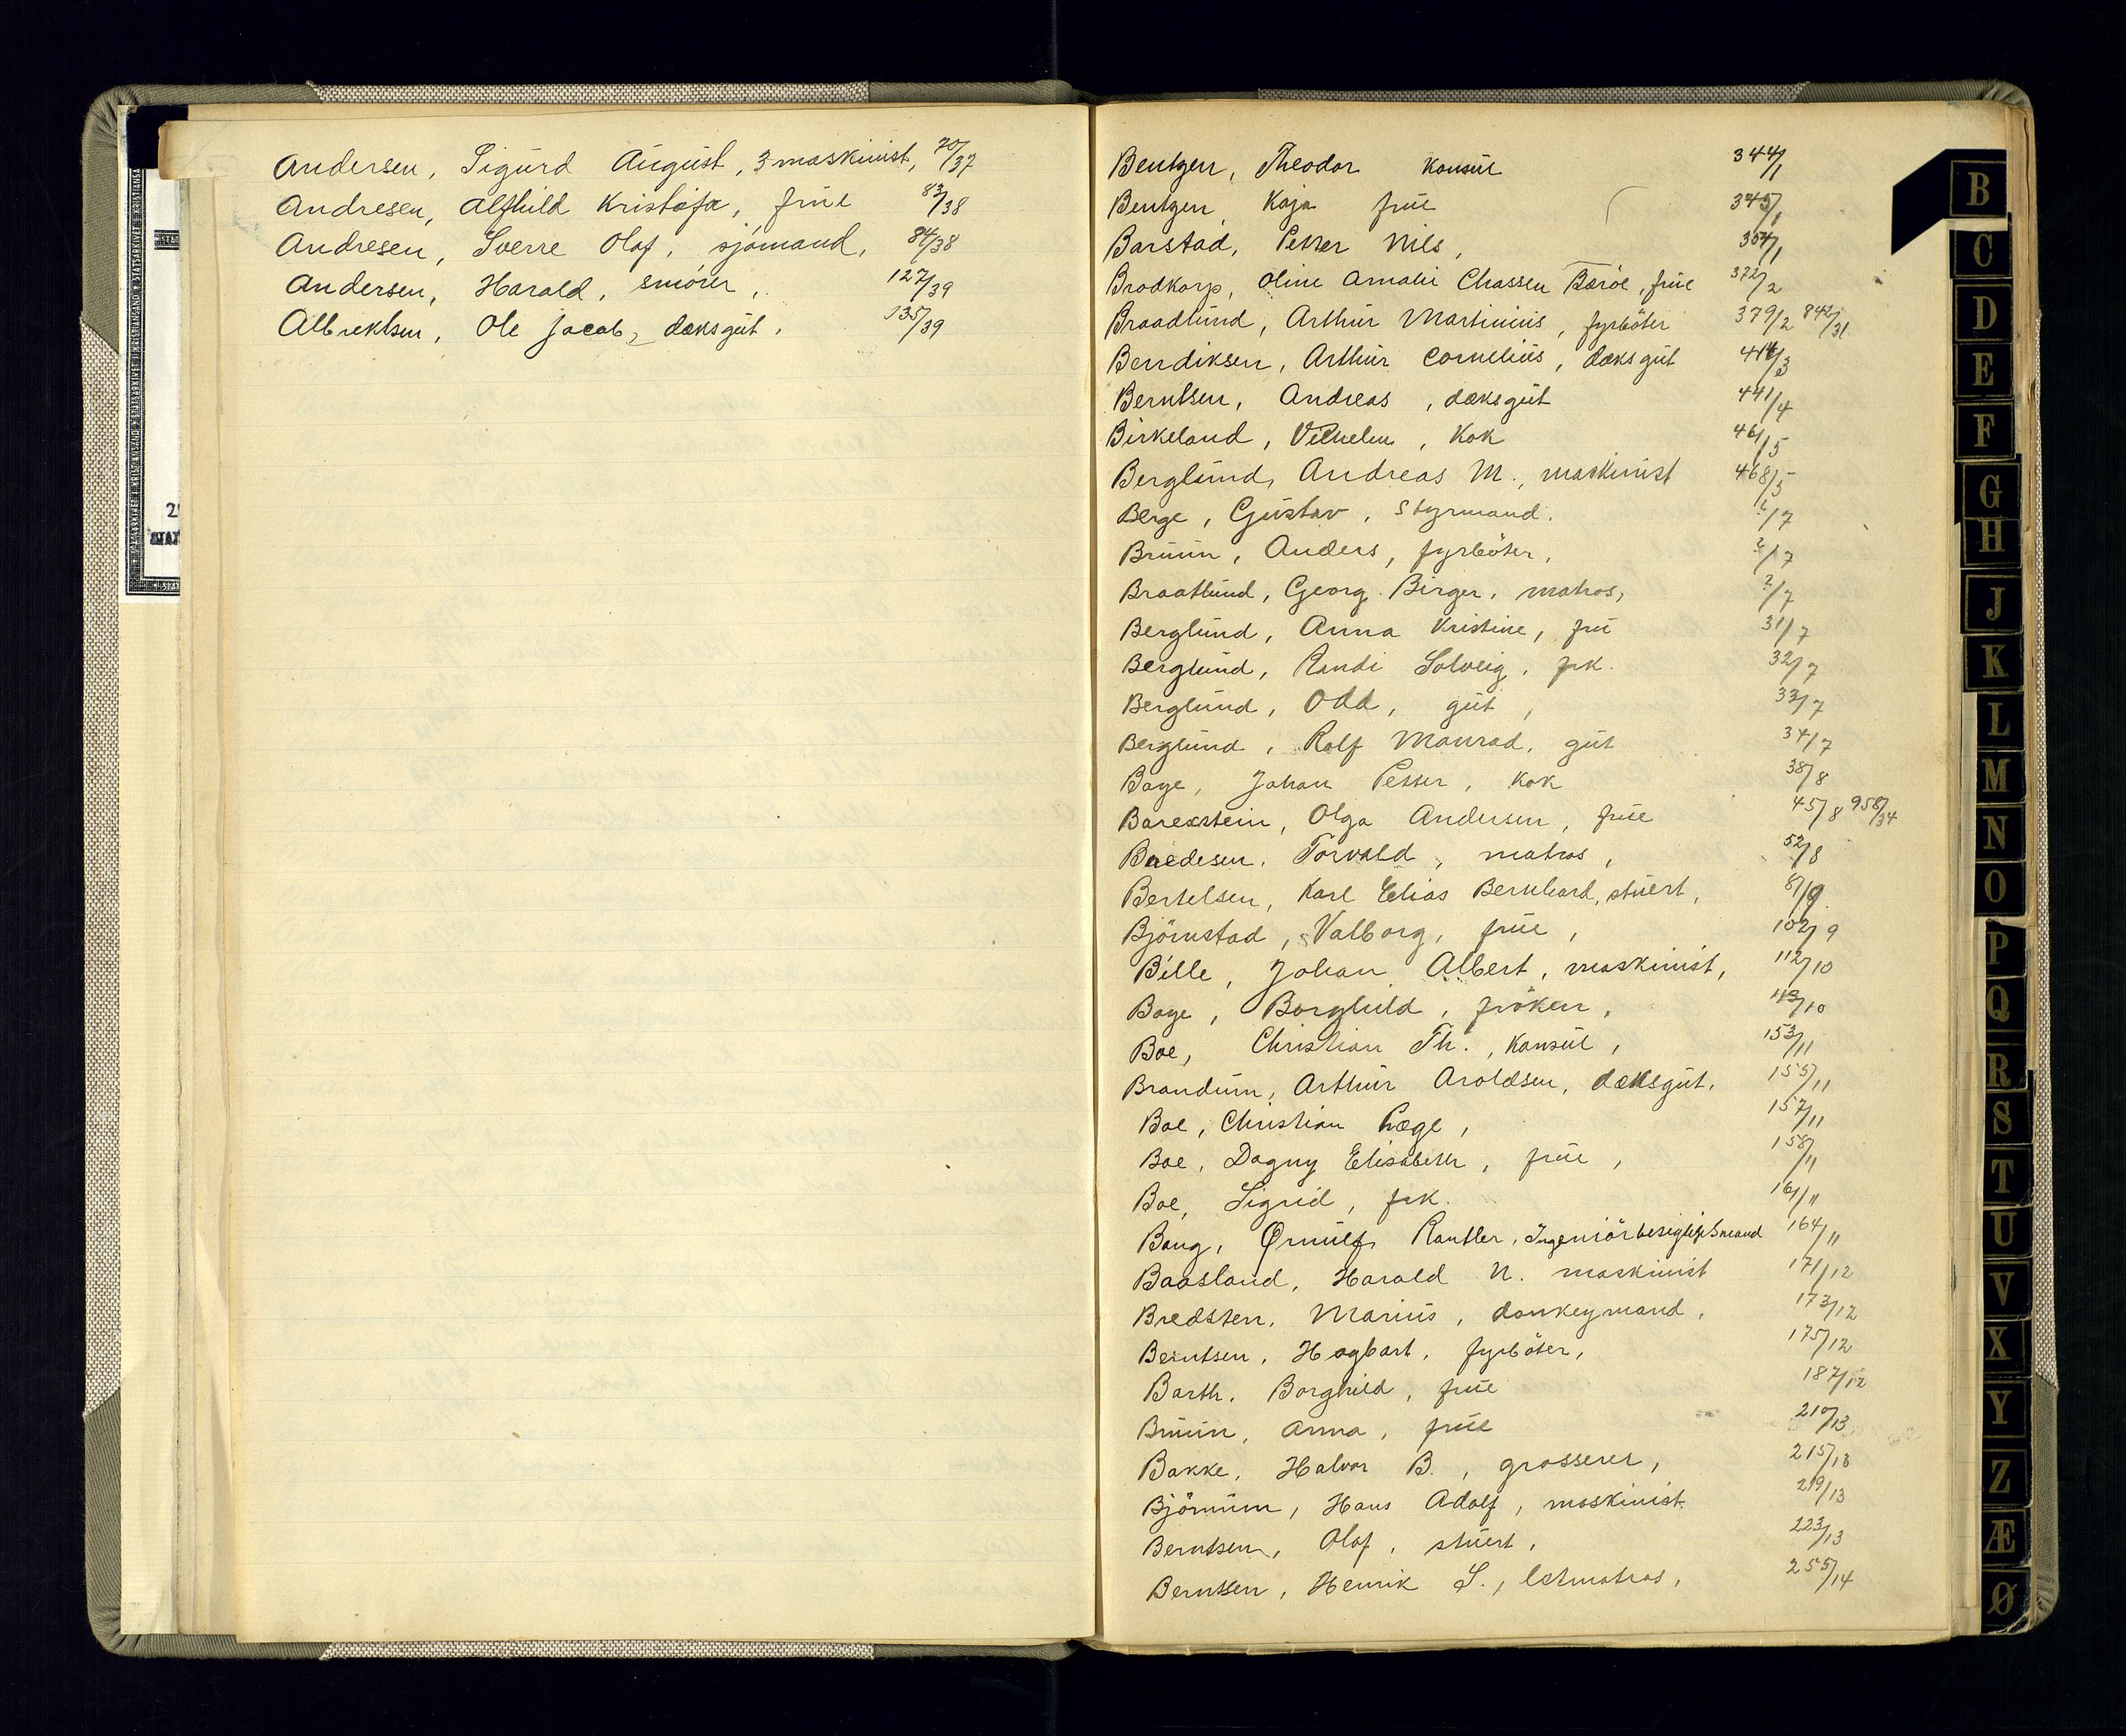 Andersen, Sigurd August, 3 maskinist, 70/37
Andresen, Alfhild Kristofa, frue 83/38
Andresen, Sverre Olaf, sjömand, 84/38
Andersen, Harald, smörer, 127/39
Albrektsen, Ole Jacob, dæksgut. 135/39
Bentzen, Theodor Konsul 344/1
Bentzen, Kaja frue 345/1
Barstad, Petter Nils, 354/1
Brodkorp, Oline Amalie Chassen Barøe, frue 372/2
Braadlund, Arthur Martinius, fyrböter 379/2 842/31
Bendiksen, Arthur Cornelius, dæksgut 414/3
Berntsen, Andreas, dæksgut 441/4
Birkeland, Vilhelm, Kok 461/5
Berglund, Andreas M., maskinist 468/5
Berge, Gustav, Styrmand. 1/7
Bruun, Anders, fyrböter, 2/7
Braatlund, Georg Birger, matros, 2/7
Berglund, Anna Kristine, fru 31/7
Berglund, Randi Solveig, frk. 32/7
Berglund, Odd, gut, 33/7
Berglund, Rolf Monrad, gut 34/7
Boye, Johan Petter, Kok 38/8
Barexstein, Olga Andersen, frue 45/8 958/34
Boedesen, Torvald, matros, 52/8
Bertelsen, Karl Elias Bernhard, stuert, 81/9
Björnstad, Valborg, frue, 102/9
Bille, Johan Albert, maskinist, 112/10
Boye, Borghild, fröken, 113/10
Boe, Christian Th., Konsul, 153/11
Brandum, Arthur Aroldsen, dæksgut. 155/11
Boe, Christian Præge, 157/11
Boe, Dagny Elisabeth, frue, 158/11
Boe, Sigrid, frk. 161/11
Bang, Ørnulf Rantler, Ingeniör besigtigelsmand 164/11
Baasland, Harald N. maskinist 171/12
Bredsten, Marius, donkeymand, 173/12
Berntsen, Hagbart, fyrböter, 175/12
Barth, Borghild, frue 187/12
Bruun, Anna, frue 210/13
Bakke, Halvor B., grosserer, 215/13
Björnum, Hans Adolf, maskinist 219/13
Berntsen, Olaf, stuert, 223/13
Berntsen, Henrik S., letmatros, 255/14
B
C
D
E
F
G
H
J
K
L
M
N
O
P
Q
R
S
T
U
V
X
Y
Z
Æ
Ø